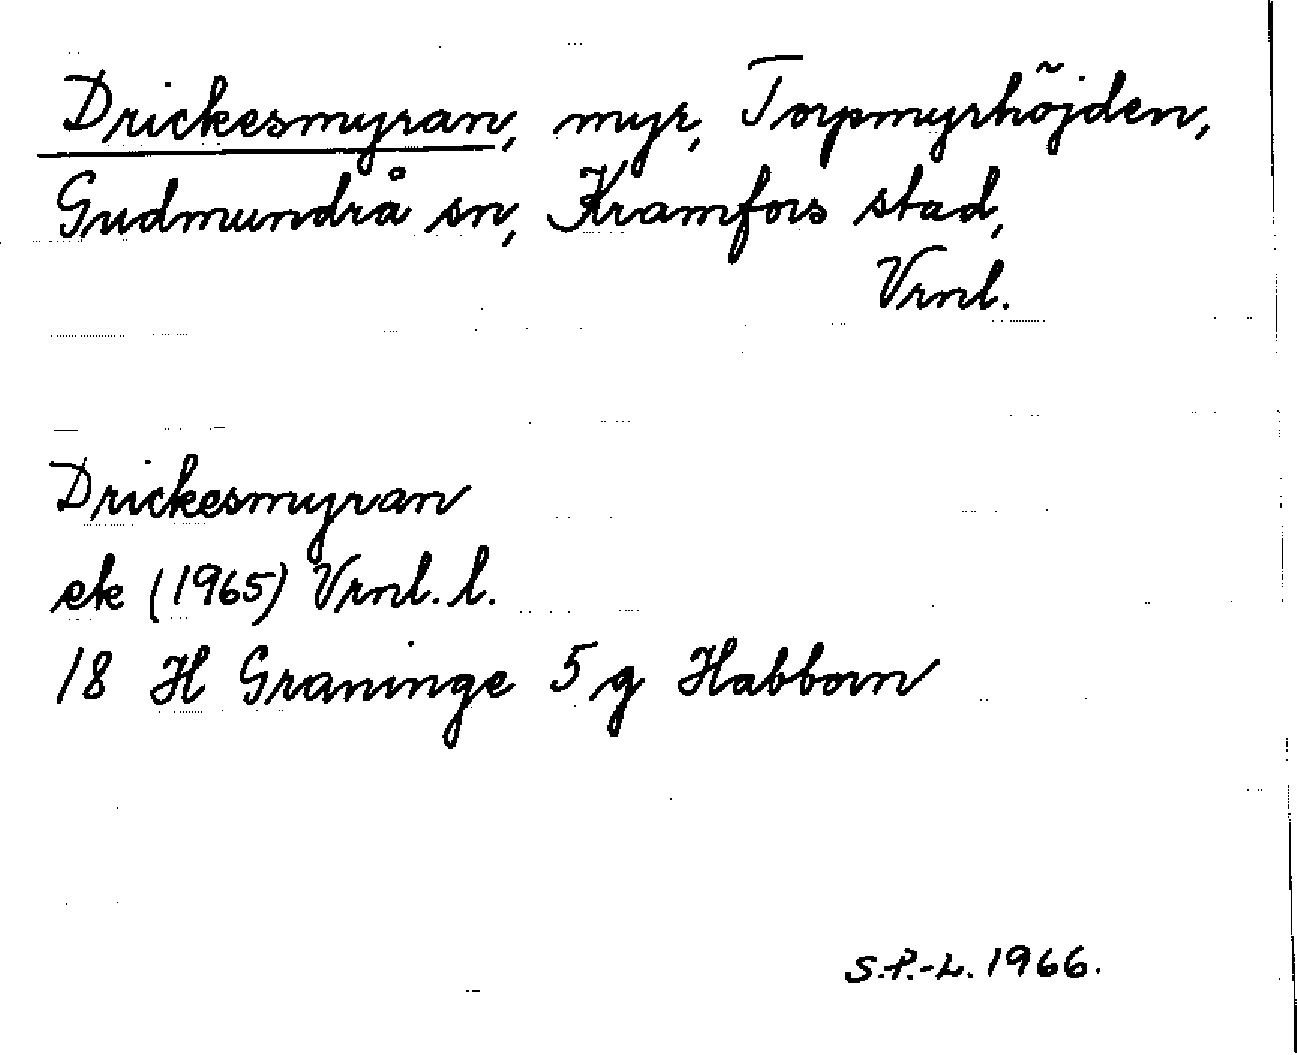 Drickesmyran, myr, Torpmyrhöjden,
Gudmundrå sn, Kramfors stad,
Vrnl.
Drickesmyran
ek (1965) Vrnl. l.
18 H Graninge 5 g Habborn
S.P.-L. 1966.